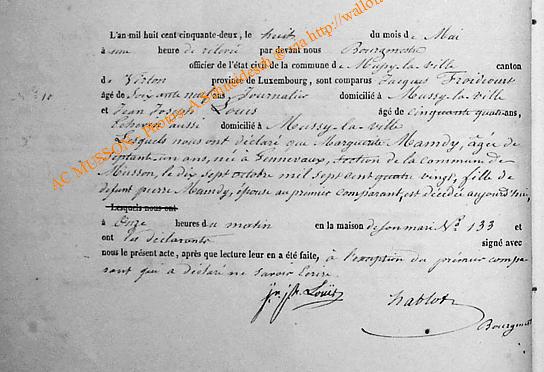 L'an mil huit cent cinquante-deux, le huit du mois de Mai
à une heure de relevée par devant nous Bourgmestre
officier de l'état civil de la commune de Mussy-la-ville canton
de Virton province de Luxembourg, sont comparus Jacques Froidcourt
âgé de Soixante neuf ans, Journalier domicilié à Mussy-la-ville
N° 10
et Jean Joseph Louis âgé de cinquante quatre ans,
Echevin aussi domicilié à Mussy-la-ville
Lesquels nous ont déclaré que Marguerite Mamdy, âgée de
septante un ans, née à Gennevaux, section de la commune de
Musson, le dix sept octobre mil sept cent quatre vingt, fille de
defunt pierre Mamdy, épouse au premier comparant, est décédée aujourd'hui,
Lesquels nous ont
à Onze heures du matin en la maison de son mari N° 133 et
ont les déclarants signé avec
nous le présent acte, après que lecture leur en a été faite, à l'exception du premier compa-
rant qui a déclaré ne savoir écrire.
J. J. Louis hablot
Bourgmestre
AC MUSSON - Photos A.S. via http://wallo